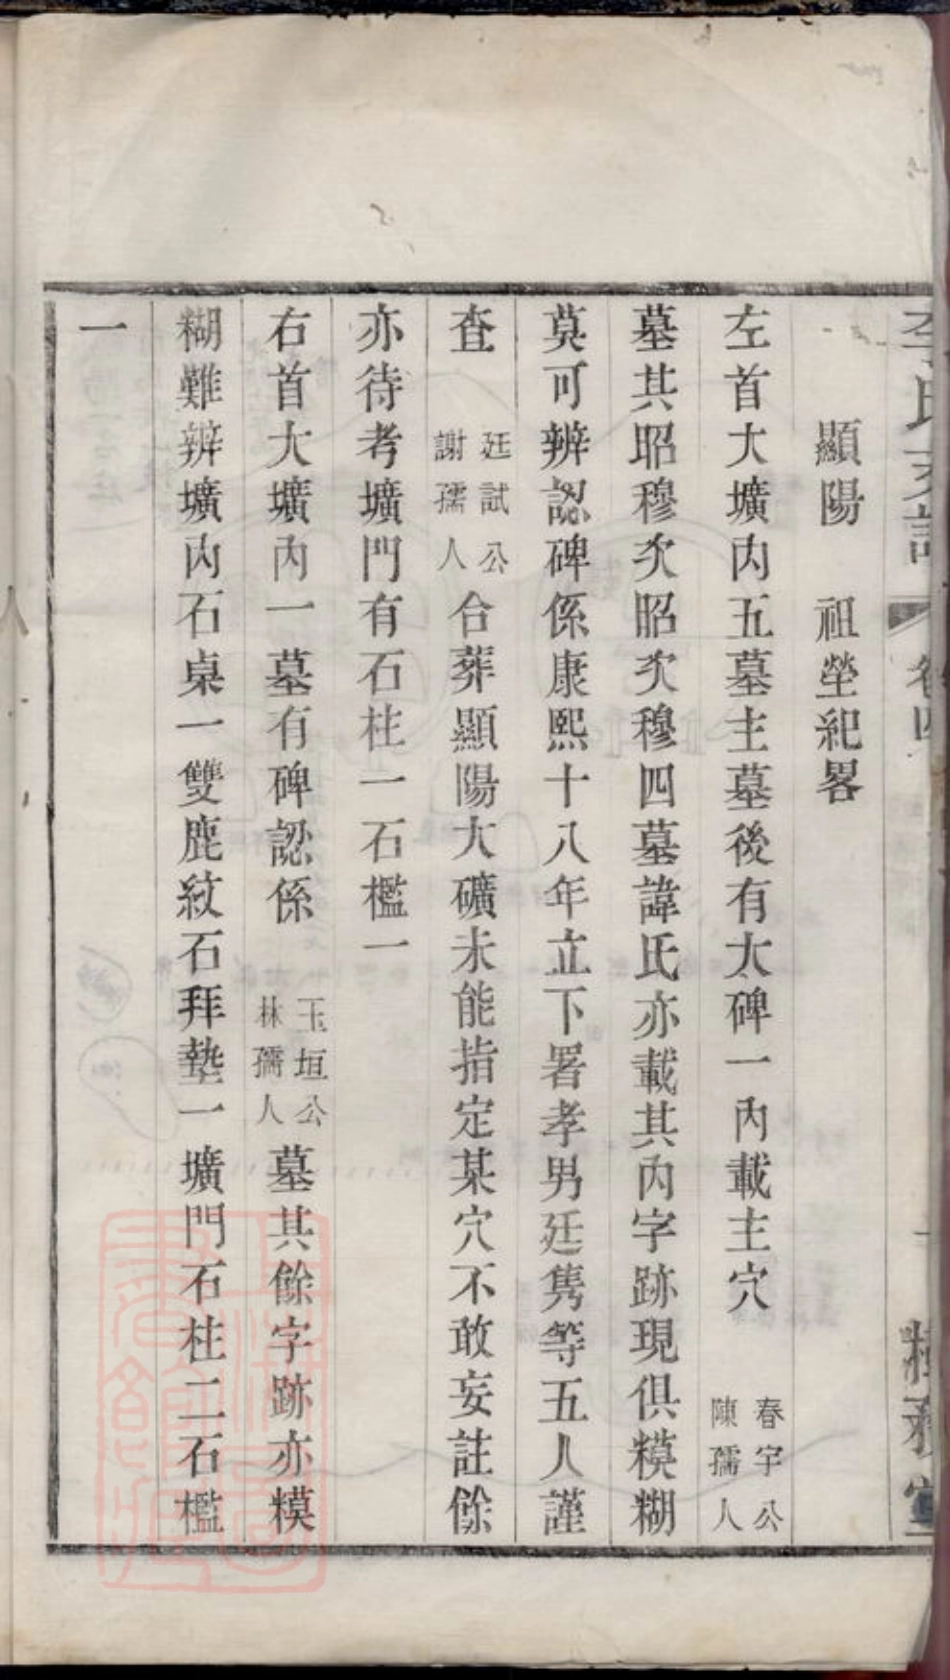 李氏支譜 卷四
顯陽 祖塋紀畧
左首大壙內五墓主墓後有大碑一內載主穴 春宇公 陳孺人
墓其昭穆次昭次穆四墓諱氏亦載其內字跡現俱糢糊
莫可辨認碑係康熙十八年立下署孝男廷雋等五人謹
查 廷試公 謝孺人 合葬顯陽大礦未能指定某穴不敢妄註餘
亦待考壙門有石柱一石檻一
右首大壙內一墓有碑認係 玉垣公 林孺人 墓其餘字跡亦糢
糊難辨壙內石桌一雙鹿紋石拜墊一壙門石柱二石檻
一